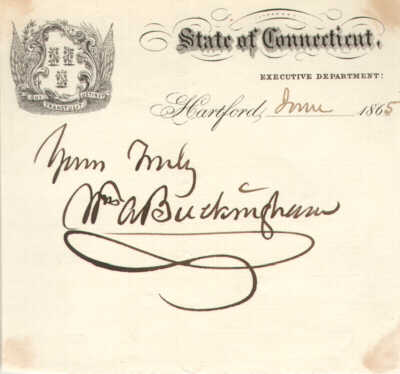 State of Connecticut,
EXECUTIVE DEPARTMENT:
QUI TRANSTULIT SUSTINET
Hartford, June 1865
Yours Truly
Wm A Buckingham